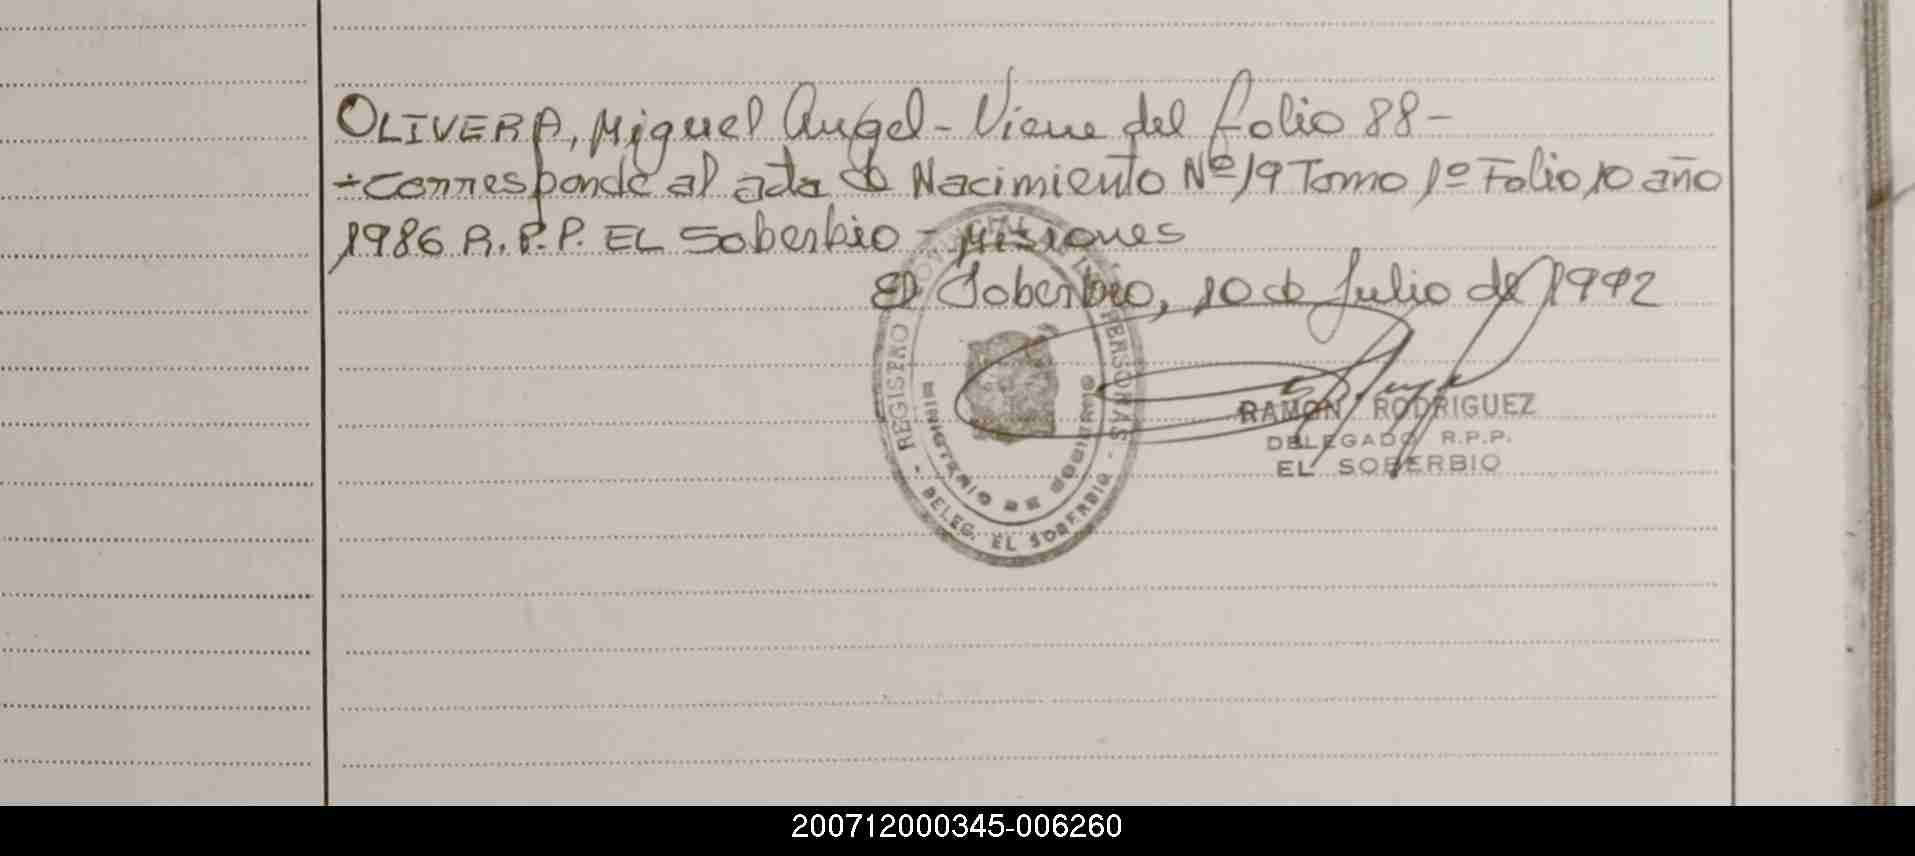 OLIVERA, Miguel Angel - Viene del folio 88 -
- Corresponde al acta de Nacimiento Nº 19 Tomo 1º Folio 10 año
1986 R.P.P. EL Soberbio - Misiones
El Soberbio, 10 de Julio de 1992
REGISTRO PERSONAS - DELEG. EL SOBERBIO -
MINISTERIO DE GOBIERNO
RAMON RODRIGUEZ
DELEGADO R.P.P.
EL SOBERBIO
200712000345-006260